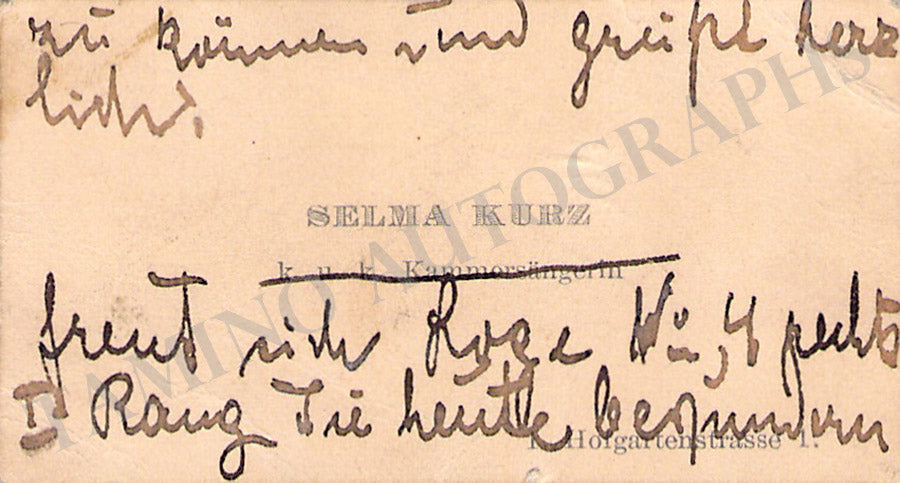 zu können und grüßt herz
lich.
SELMA KURZ
k. u. k. Kammersängerin
freut sich Loge No 4 rechts
II Rang Sie heute bewundern
I. Hofgartenstrasse 1.
TAMINO AUTOGRAPHS